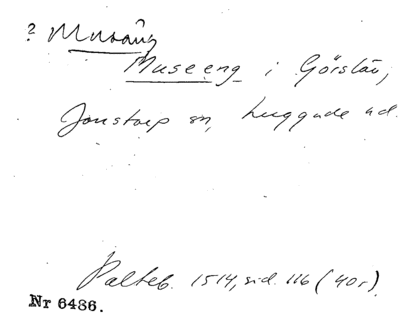 ? Musäng
Museeng i Görslöv,
Jonstorp sn, Luggude hd.
Palteb. 1514, sid. 116 (40r).
Nr 6486.